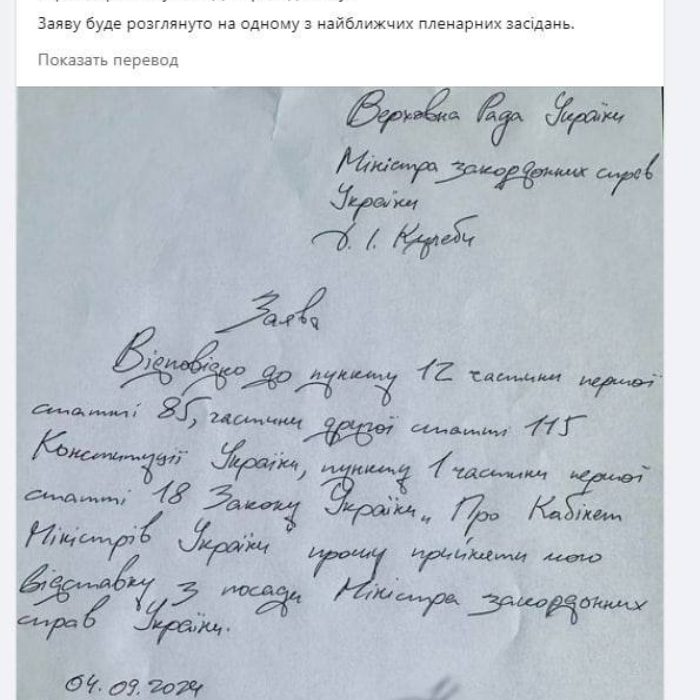 Заяву буде розглянуто на одному з найближчих пленарних засідань.
Показать перевод
Верховна Рада України
Міністра закордонних справ
України
Д. І. Кулеби
Заява
Відповідно до пункту 12 частини першої
статті 85, частини другої статті 115
Конституції України, пункту 1 частини першої
статті 18 Закону України „Про Кабінет
Міністрів України" прошу прийняти мою
відставку з посади Міністра закордонних
справ України.
04.09.2024